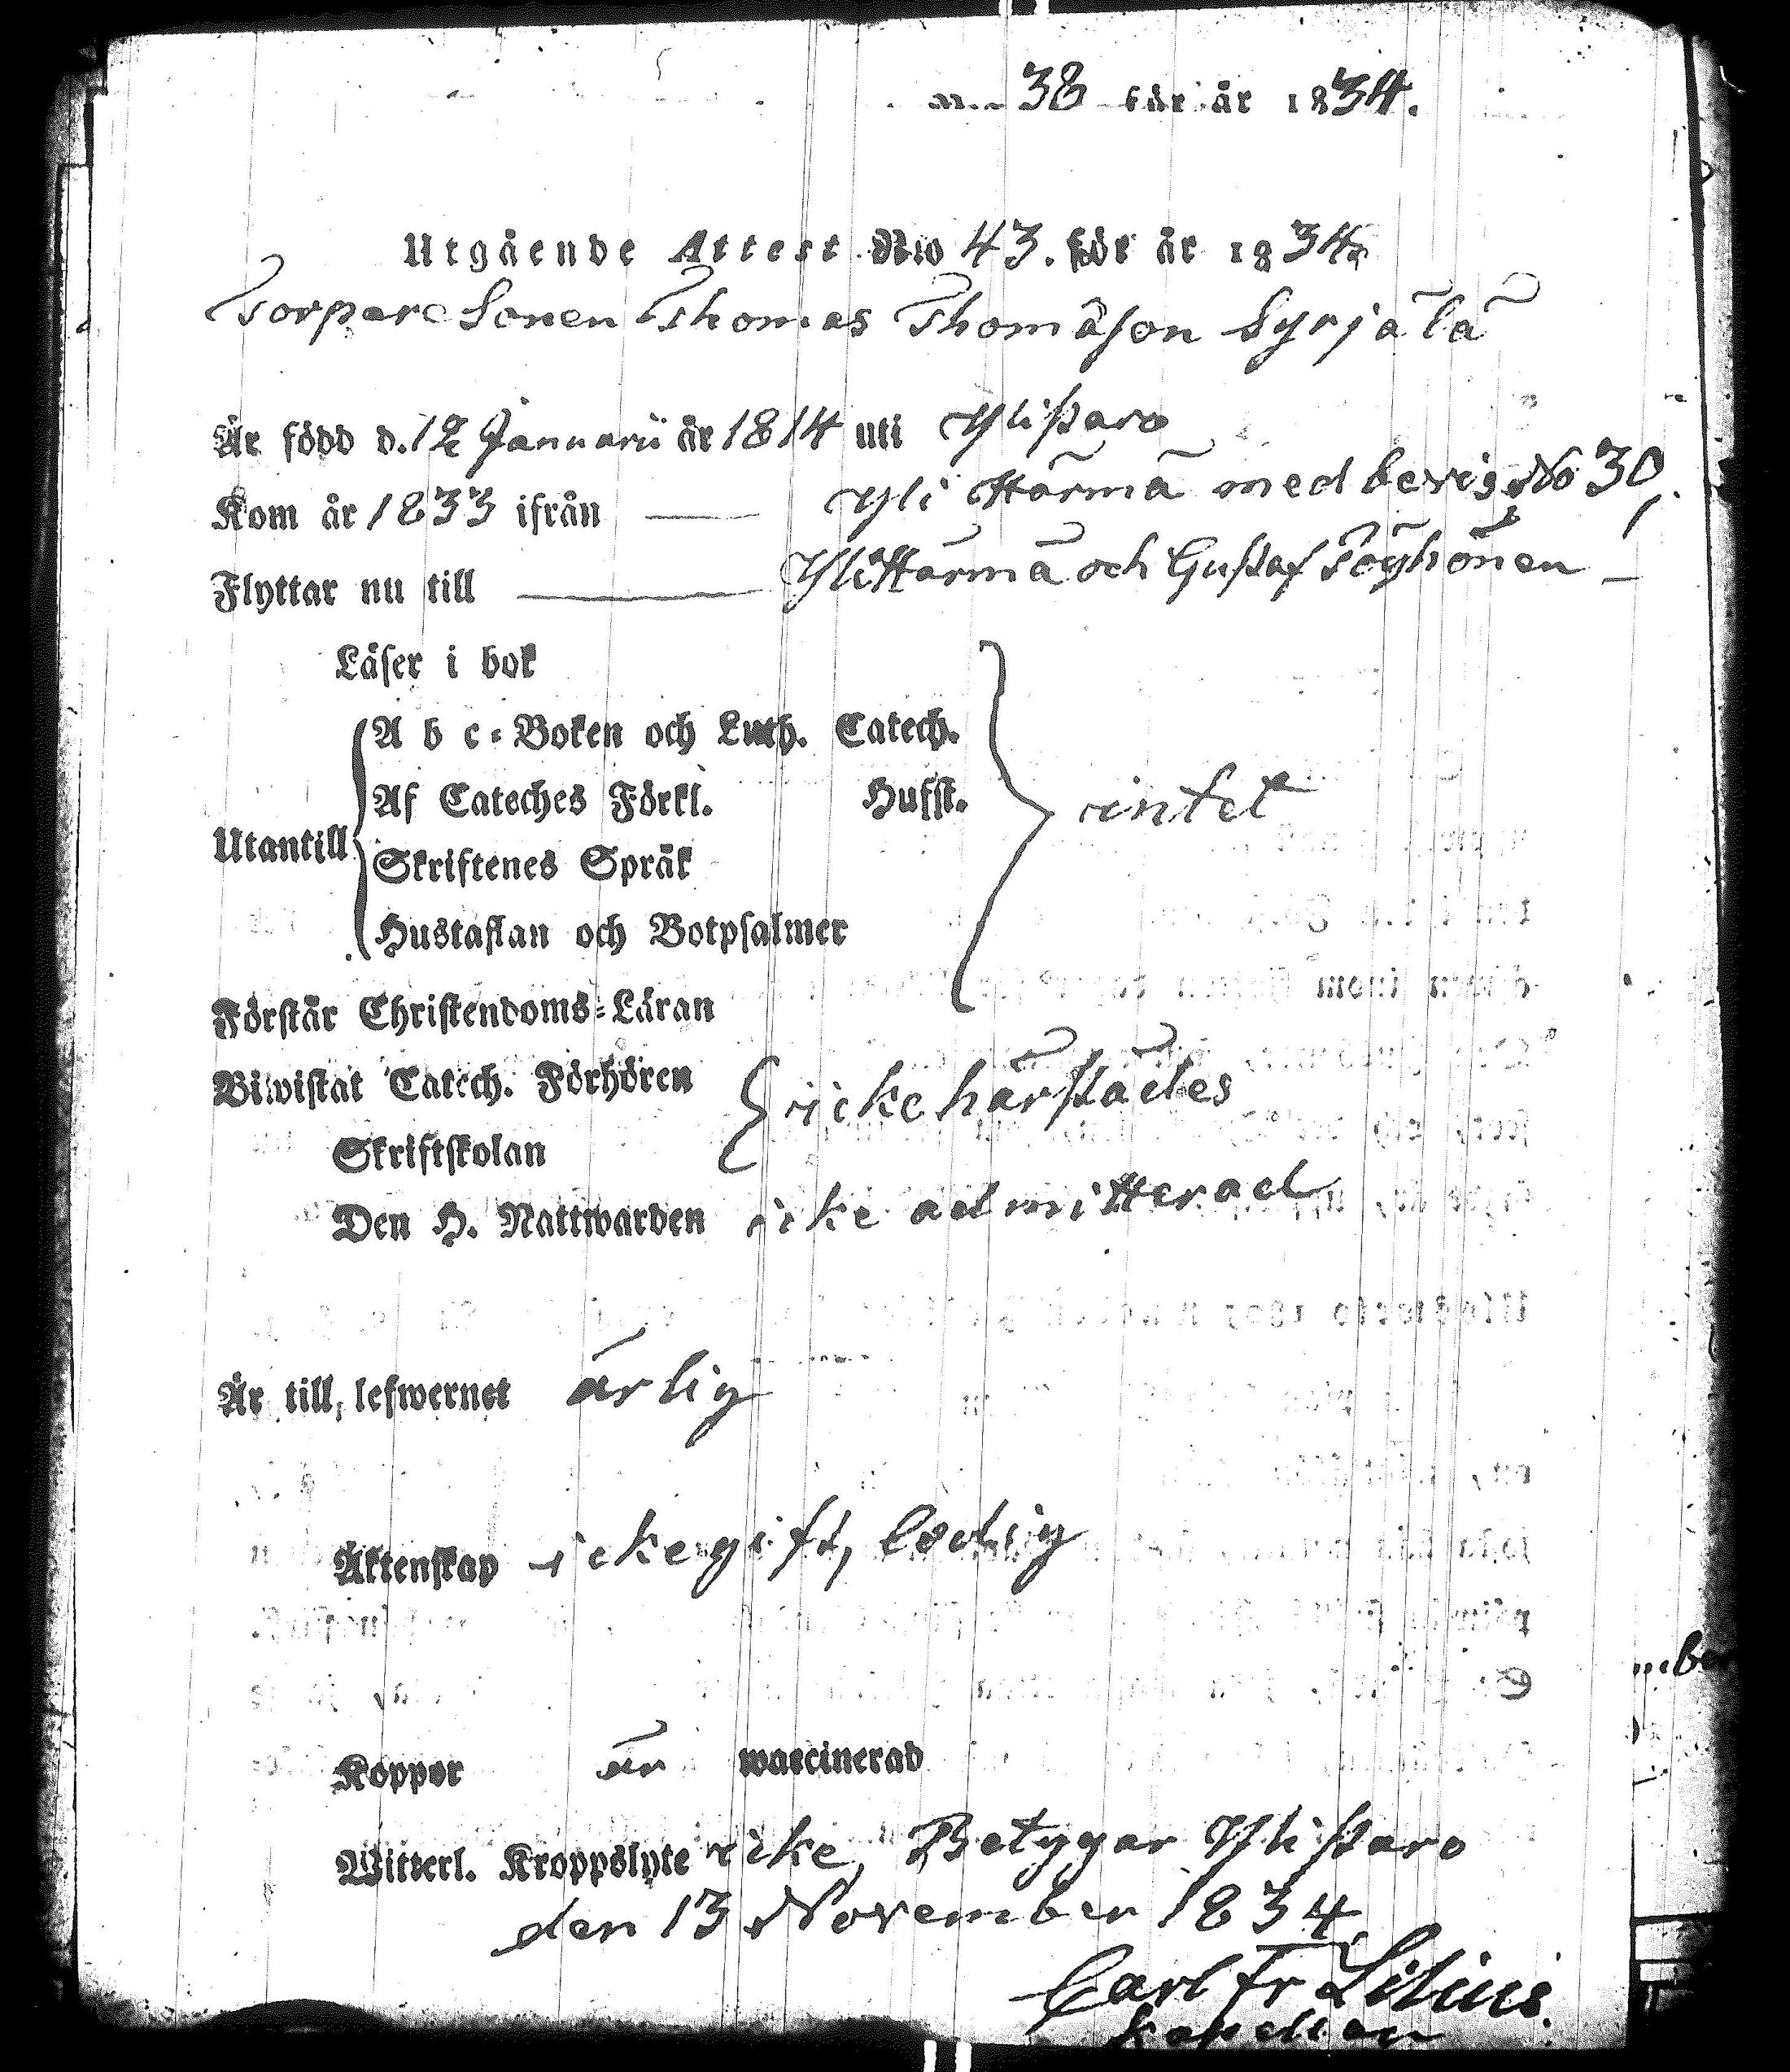 38 för år 1834.
Utgående Attest No 43. för år 1834.
Torpare Sonen Thomas Thomäſon Syrjälä
Är född d. 12 Januarii år 1814 uti Yliſtaro
Kom år 1833 ifrån — Yli Härmä med bevis No 30,
Flyttar nu till — Yli Härmä och Guſtaf Töyhönen —
Läſer i bok
A b c-Boken och Luth. Catech.
Af Cateches Förkl. Husſt. intet
Utantill
Skriftenes Språk
Hustaflan och Botpſalmer
Förſtår Chriſtendoms-Läran
Biwiſtat Catech. Förhören icke härſtädes
Skriftſkolan
Den H. Nattwarden icke admitterad
Är till lefwernet ärlig
Äktenſkap icke gift, ledig
Koppor är waccinerad
Witterl. Kroppslyte icke, Betygar Yliſtaro
den 13 November 1834
Carl Fr Lilius.
Kapellan